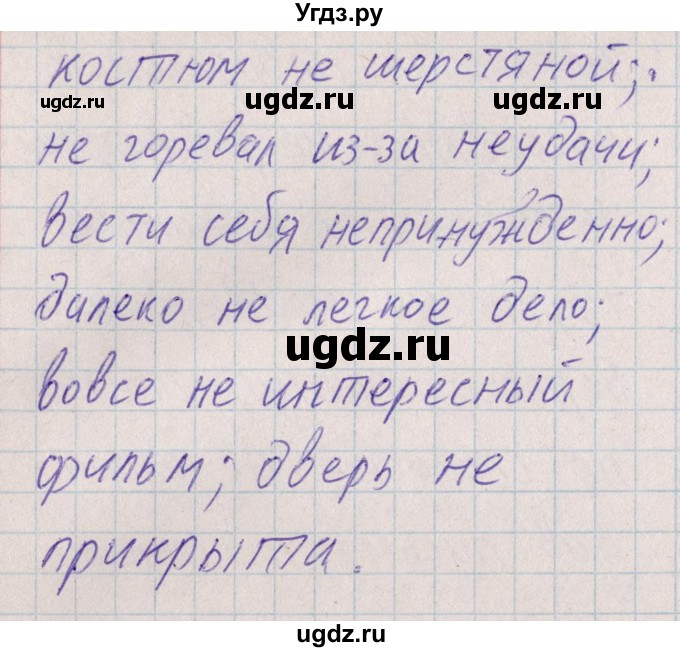 Угдз.ру
костюм не шерстяной;
ugdz.ru ugdz.ru ugdz.ru
не горевал из-за неудачи;
вести себя непринужденно;
далеко не легкое дело;
ugdz.ru
вовсе не интересный
фильм; дверь не
прикрыта.
ugdz.ru
ugdz.ru